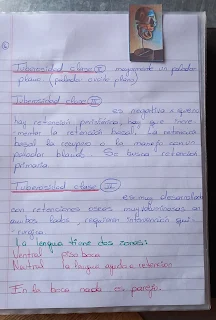 Tuberosidad clase (I) mayormente un paladar
plano (paladar ovoide plano)
Tuberosidad clase (II)
es negativa o
hay retención que hay que incre-
mentar la retención basal. La retención
basal la recupero o la manejo con un
paladar blando. Se busca retención
primaria.
Tuberosidad clase (III)
es muy desarrollada
con retenciones oseas muy voluminosas en
ambos lados, requieren intervención quir-
urgica
La lengua tiene dos zonas:
Ventral piso boca
Neutral la lengua ayuda a retención
En la boca nada es parejo.